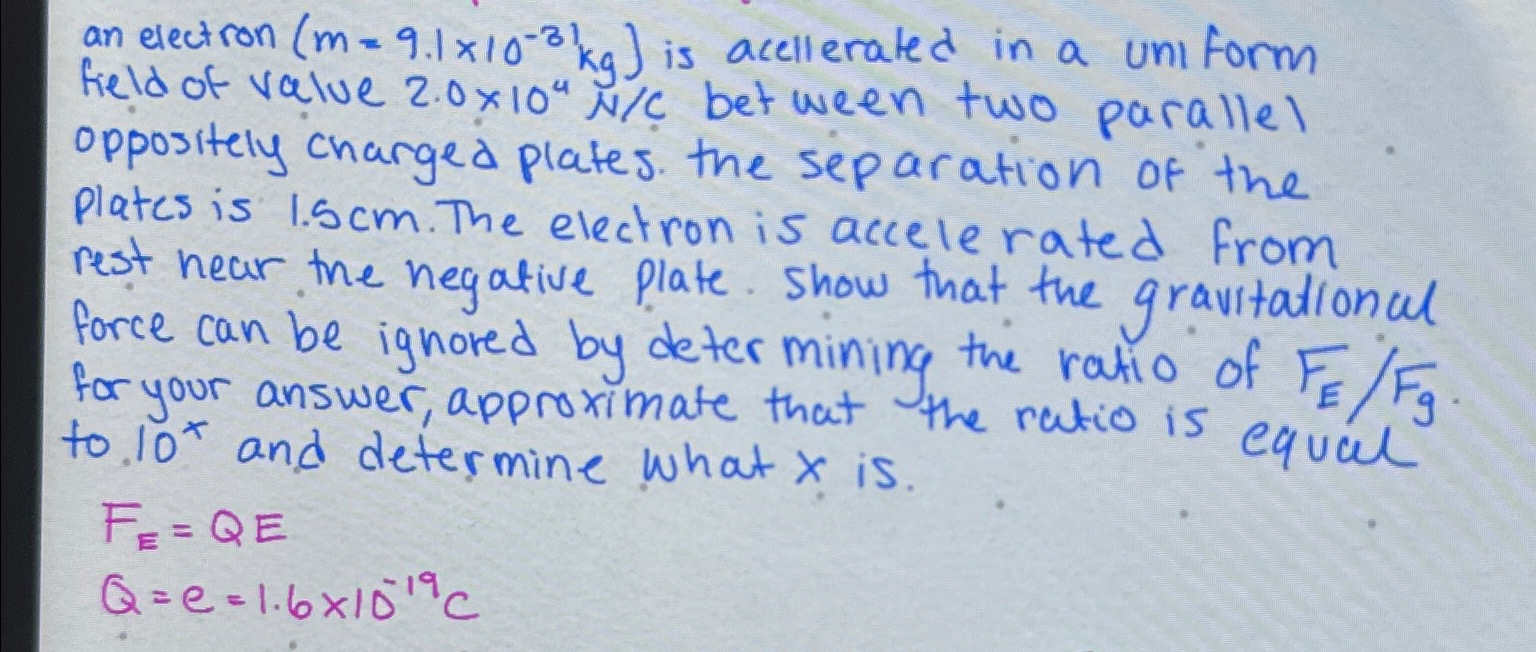 an electron (m = 9.1×10⁻³¹kg) is acellerated in a uniform
field of value 2.0×10⁴ N/C between two parallel
oppositely charged plates. the separation of the
plates is 1.5cm. The electron is accelerated from
rest near the negative plate. show that the gravitational
force can be ignored by determining the ratio of F_E/F_g.
for your answer, approximate that the ratio is equal
to 10ˣ and determine what x is.
F_E = QE
Q = e = 1.6×10⁻¹⁹C